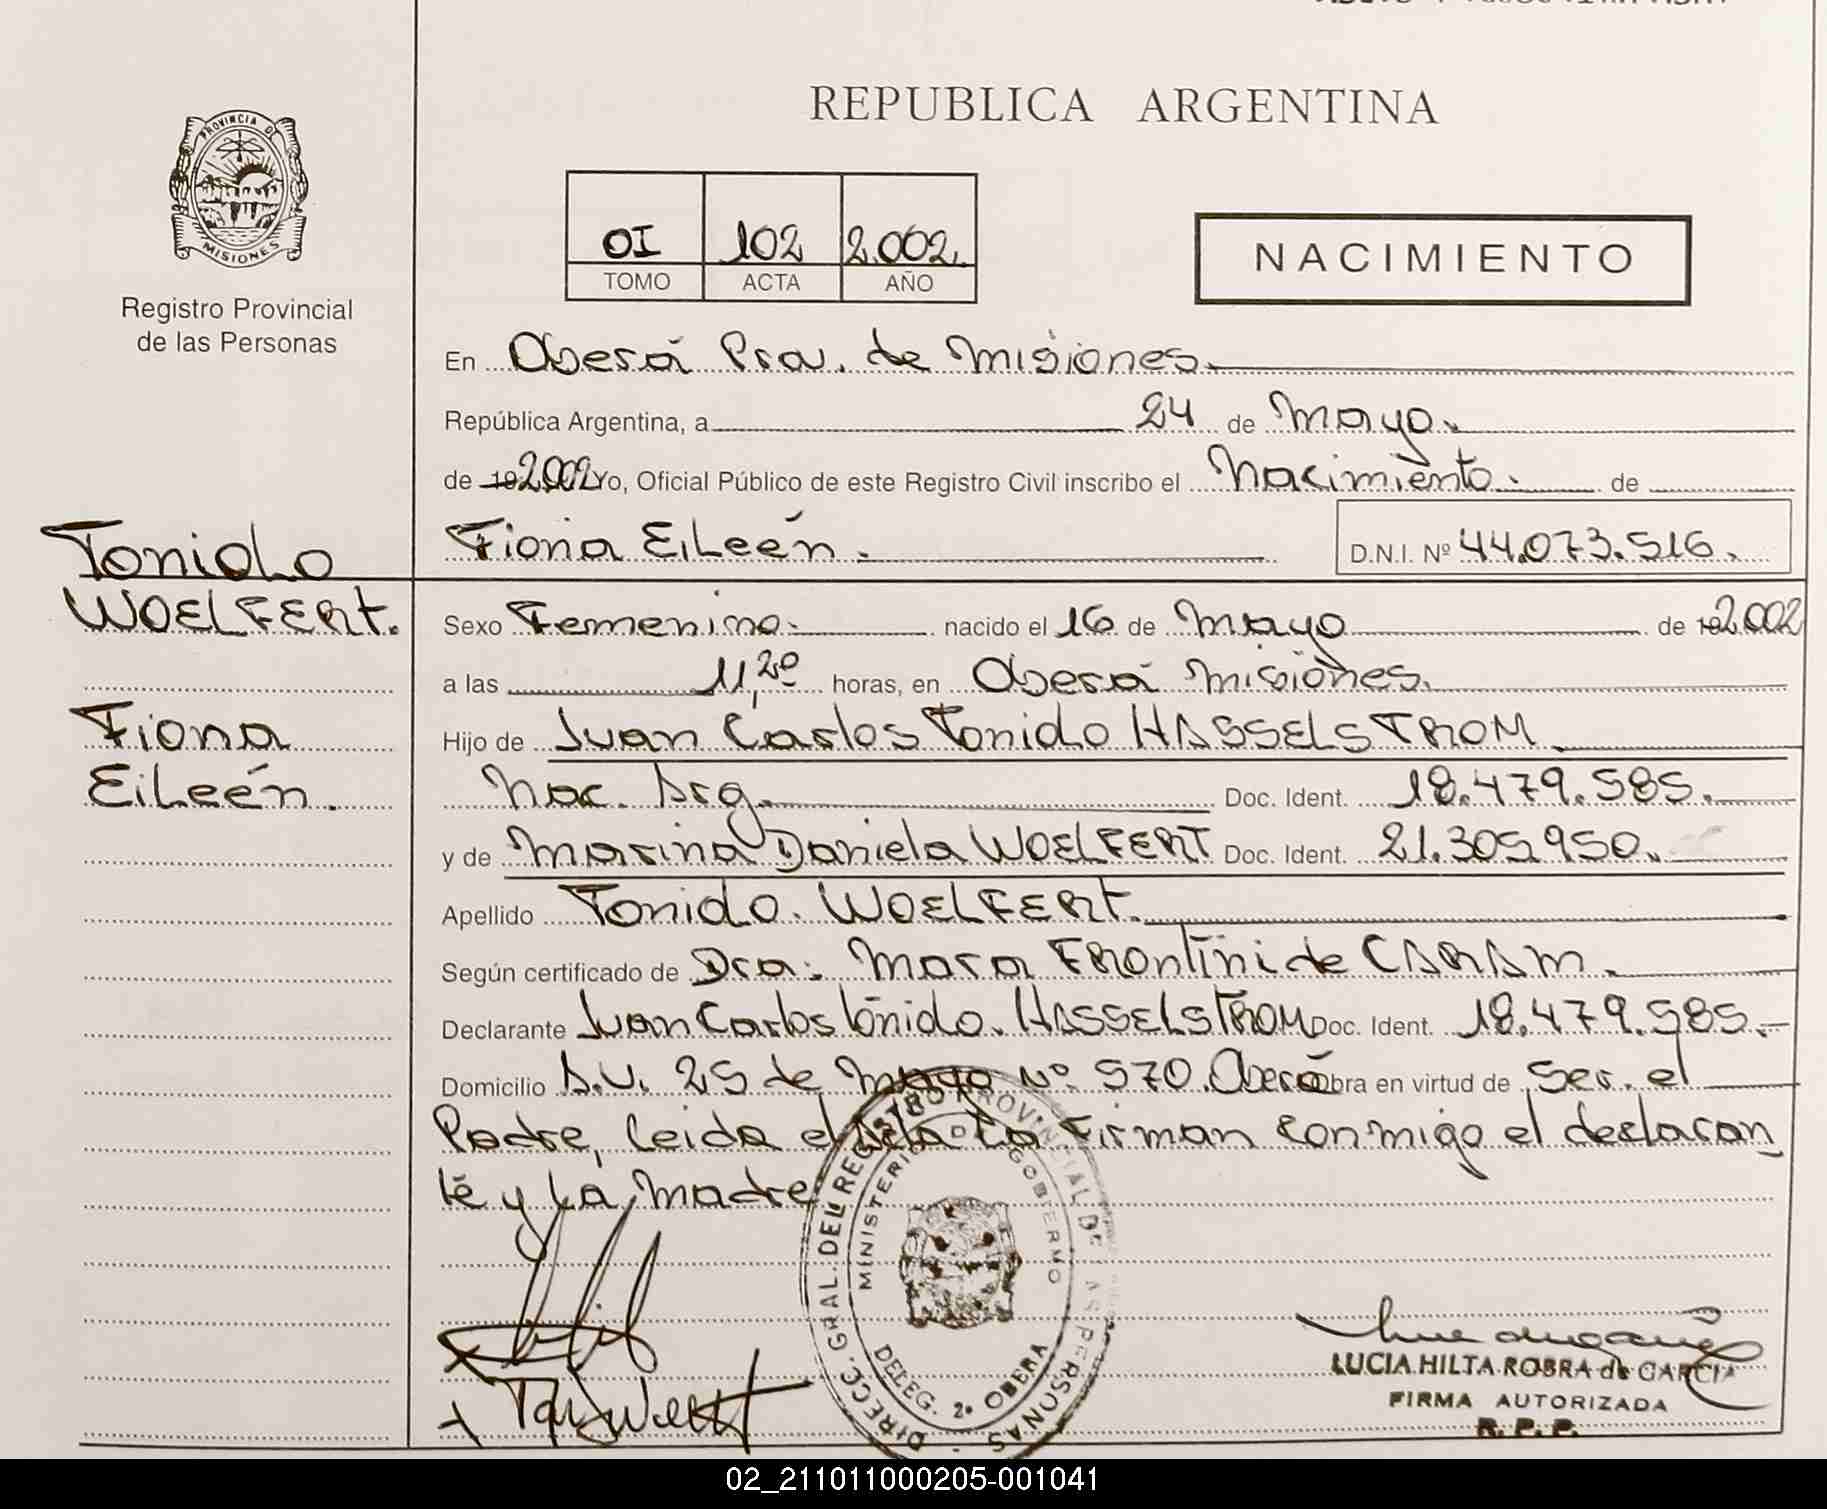 REPUBLICA ARGENTINA
PROVINCIA DE
MISIONES
Registro Provincial
de las Personas
OI 102 2.002.
TOMO ACTA AÑO
NACIMIENTO
En Oberá Prov. de Misiones.
República Argentina, a 24 de Mayo.
de 19 2.002 Yo, Oficial Público de este Registro Civil inscribo el Nacimiento. de
Fiona Eileén. D.N.I. Nº 44.073.516.
Tonido
WOELFERt.
Fiona
Eileén.
Sexo Femenino. nacido el 16 de Mayo de 19 2.002
a las 11,20 horas, en Oberá Misiones.
Hijo de Juan Carlos Tonido HASSELSTROM
Nac. Arg. Doc. Ident. 18.479.585.
y de Marina Daniela WOELFERT Doc. Ident. 21.305.950.
Apellido Tonido. WOELFERt.
Según certificado de Dra. Mara FRontini de CARAM.
Declarante Juan Carlos Tonido. HASSELSTROM Doc. Ident. 18.479.585.
Domicilio A.V. 25 de Mayo Nº 570 Oberá obra en virtud de Ser. el
Padre, leida el Acta La Firman conmigo el declaran
te y La Madre
DIRECC. GRAL. DEL REGISTRO PROVINCIAL DE LAS PERSONAS
MINISTERIO DE GOBIERNO
DELEG. 2ª OBERA
LUCIA HILTA ROBRA de GARCIA
FIRMA AUTORIZADA
R.P.P.
02_211011000205-001041